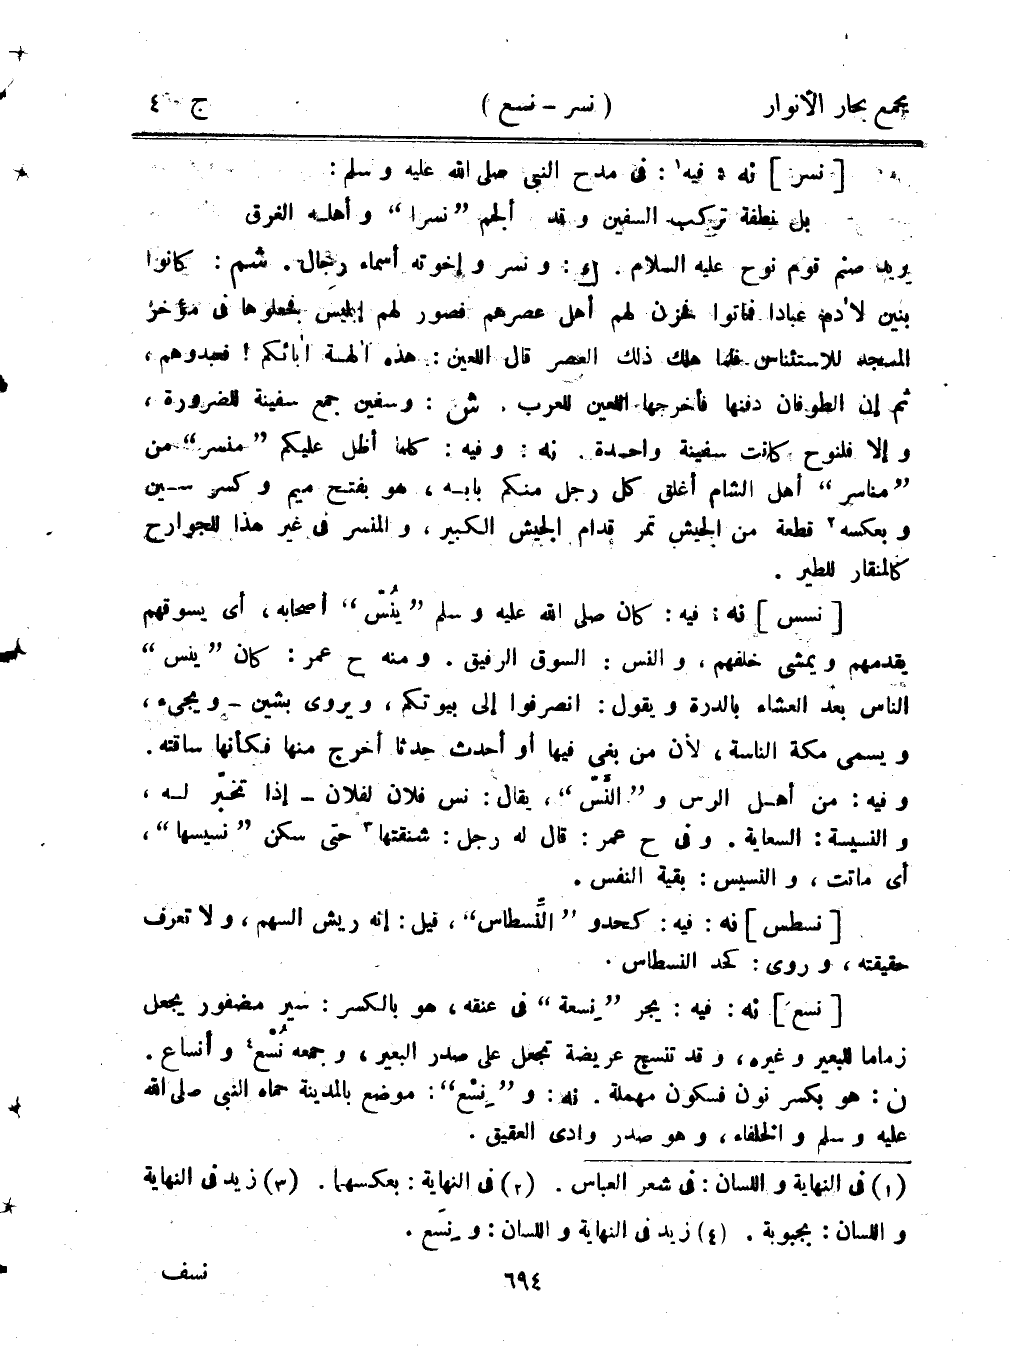 مجمع بحار الأنوار ( نسر – نسع ) ج – ٤
[ نسر ] نه : فيه١ : فى مدح النبى صلى الله عليه و سلم :
بل نطفة تركب السفين و قد ألجم ”نسرا“ و أهله الغرق
يريد صنم قوم نوح عليه السلام . ك : و نسر و إخوته أسماء رجال . شم : كانوا
بنين لآدم عبادا فماتوا فحزن لهم أهل عصرهم فصور لهم إبليس فجعلوها فى مؤخر
المسجد للاستئناس فلما هلك ذلك العصر قال اللعين : هذه آلهة آبائكم ! فعبدوهم ،
ثم إن الطوفان دفنها فأخرجها اللعين للعرب . ش : و سفين جمع سفينة للضرورة ،
و إلا فلنوح كانت سفينة واحدة . نه : و فيه : كلما أظل عليكم ”منسر“ من
”مناسر“ أهل الشام أغلق كل رجل منكم بابه ، هو بفتح ميم و كسر سين
و بعكسه٢ قطعة من الجيش تمر قدام الجيش الكبير ، و المنسر فى غير هذا للجوارح
كالمنقار للطير .
[ نسس ] نه : فيه : كان صلى الله عليه و سلم ”يُنُسّ“ أصحابه ، أى يسوقهم
يقدمهم و يمشى خلفهم ، و النس : السوق الرفيق . و منه ح عمر : كان ”ينس“
الناس بعد العشاء بالدرة و يقول : انصرفوا إلى بيوتكم ، و يروى بشين – و يجىء ،
و يسمى مكة الناسة ، لأن من بغى فيها أو أحدث حدثا أخرج منها فكأنها ساقته .
و فيه : من أهل الرس و ”النَّسّ“ ، يقال : نس فلان لفلان – إذا تخبّر له ،
و النسيسة : السعاية . و فى ح عمر : قال له رجل : شنقتها٣ حتى سكن ”نسيسها“ ،
أى ماتت ، و النسيس : بقية النفس .
[ نسطس ] نه : فيه : كحدو ”النِّسطاس“ ، قيل : إنه ريش السهم ، و لا تعرف
حقيقته ، و روى : كحد النسطاس .
[ نسع ] نه : فيه : يجر ”نِسعة“ فى عنقه ، هو بالكسر : سير مضفور يجعل
زماما للبعير و غيره ، و قد تنسج عريضة تجعل على صدر البعير ، و جمعه نُسْع٤ و أنساع .
ن : هو بكسر نون فسكون مهملة . نه : و ”نِسْع“ : موضع بالمدينة حماه النبى صلى الله
عليه و سلم و الخلفاء ، و هو صدر وادى العقيق .
(١) فى النهاية و اللسان : فى شعر العباس . (٢) فى النهاية : بعكسهما . (٣) زيد فى النهاية
و اللسان : بجبوبة . (٤) زيد فى النهاية و اللسان : و نِسَع .
٦٩٤ نسف